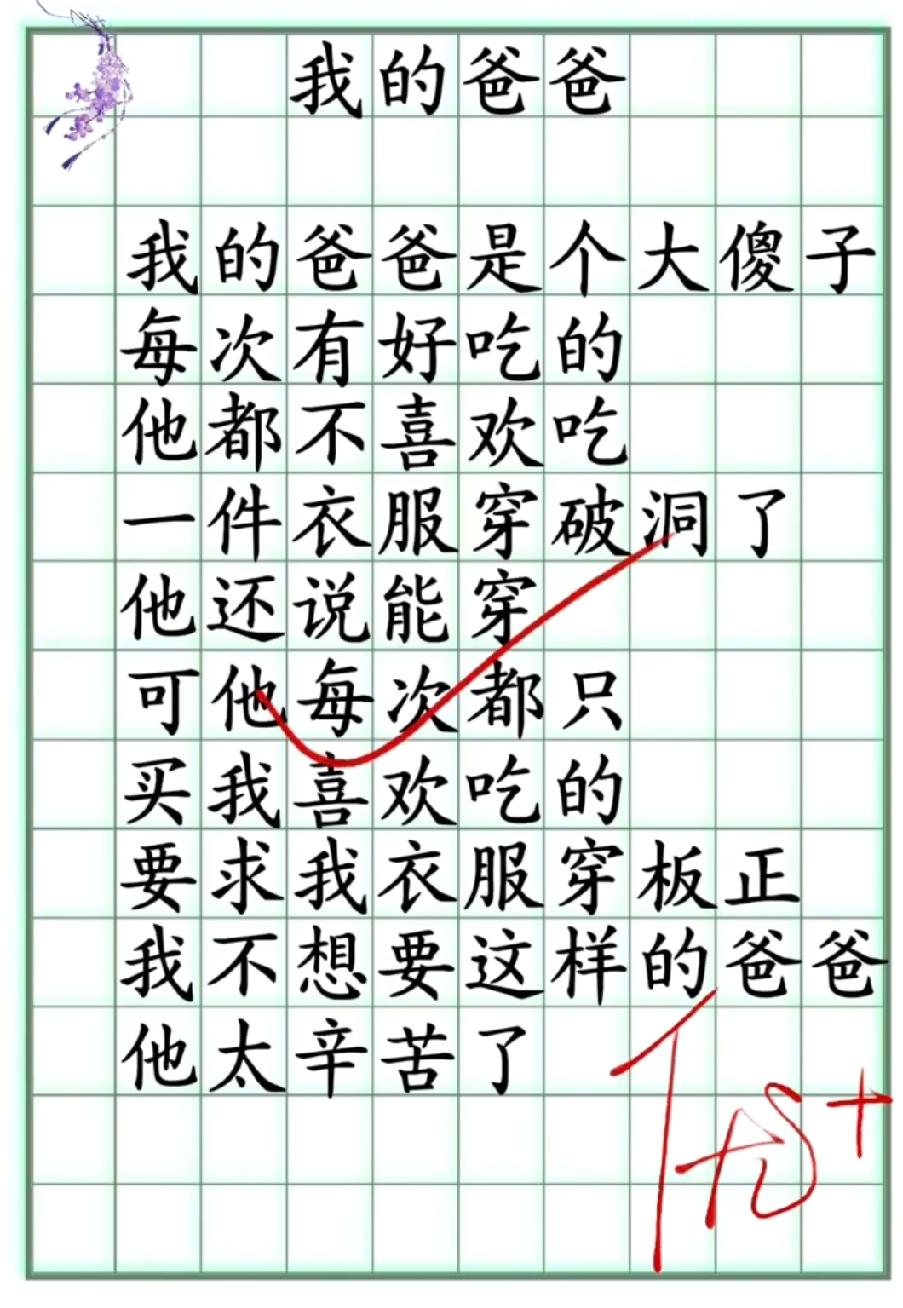 我的爸爸
我的爸爸是个大傻子
每次有好吃的
他都不喜欢吃
一件衣服穿破洞了
他还说能穿
可他每次都只
买我喜欢吃的
要求我衣服穿板正
我不想要这样的爸爸
他太辛苦了